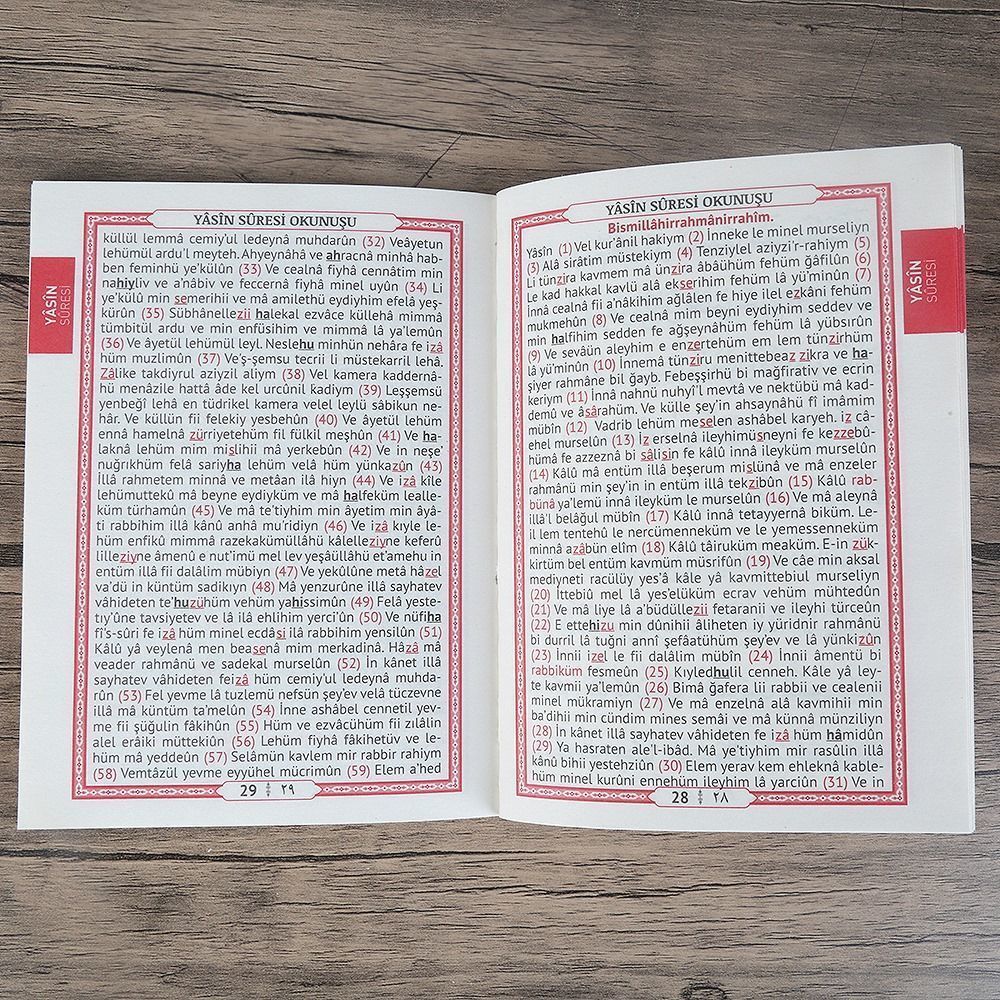 YÂSÎN SÛRESİ OKUNUŞU
Bismillâhirrahmânirrahîm.
Yâsîn (1) Vel kur'ânil hakiym (2) İnneke le minel murseliyn
(3) Alâ sirâtim müstekiym (4) Tenziylel aziyzi'r-rahiym (5)
Li tünzira kavmem mâ ünzira âbâühüm fehüm ğafilûn (6)
Le kad hakkal kavlü alâ ekserihim fehüm lâ yü'minûn (7)
İnnâ cealnâ fii a'nâkihim ağlâlen fe hiye ilel ezkâni fehüm
mukmehûn (8) Ve cealnâ mim beyni eydiyhim seddev ve
min halfihim sedden fe ağşeynâhüm fehüm lâ yübsırûn
(9) Ve sevâün aleyhim e enzertehüm em lem tünzirhüm
lâ yü'minûn (10) İnnemâ tünziru menittebeaz zikra ve ha-
şiyer rahmâne bil ğayb. Febeşşirhü bi mağfirativ ve ecrin
keriym (11) İnnâ nahnü nuhyi'l mevtâ ve nektübü mâ kad-
demû ve âsârahüm. Ve külle şey'in ahsaynâhü fî imâmim
mübîn (12) Vadrib lehüm meselen ashâbel karyeh. iz câ-
ehel murselûn (13) İz erselnâ ileyhimüsneyni fe kezzebû-
hümâ fe azzeznâ bi sâlisin fe kâlû innâ ileyküm murselûn
(14) Kâlû mâ entüm illâ beşerum mislünâ ve mâ enzeler
rahmânü min şey'in in entüm illâ tekzibûn (15) Kâlû rab-
bünâ ya'lemü innâ ileyküm le murselûn (16) Ve mâ aleynâ
illâ'l belâğul mübîn (17) Kâlû innâ tetayyernâ biküm. Le-i
il lem tentehû le nercümenneküm ve le yemessenneküm
minnâ azâbün elîm (18) Kâlû tâiruküm meaküm. E-in zük-
kirtüm bel entüm kavmüm müsrifûn (19) Ve câe min aksal
mediyneti racülüy yes'â kâle yâ kavmittebiul murseliyn
(20) İttebiû mel lâ yes'elüküm ecrav vehüm mühtedûn
(21) Ve mâ liye lâ a'büdüllezii fetaranii ve ileyhi türceûn
(22) E ettehizu min dûnihii âliheten iy yüridnir rahmânü
bi durril lâ tuğni annî şefâatühüm şey'ev ve lâ yünkizûn
(23) İnnii izel le fii dalâlim mübîn (24) İnnii âmentü bi
rabbiküm fesmeûn (25) Kıyledhulil cenneh. Kâle yâ ley-
te kavmii ya'lemûn (26) Bimâ ğafera lii rabbii ve cealenii
minel mükramiyn (27) Ve mâ enzelnâ alâ kavmihii min
ba'dihii min cündim mines semâi ve mâ künnâ münziliyn
(28) İn kânet illâ sayhatev vâhideten fe izâ hüm hâmidûn
(29) Ya hasraten ale'l-ibâd. Mâ ye'tiyhim mir rasûlin illâ
kânû bihii yestehziûn (30) Elem yerav kem ehleknâ kable-
hüm minel kurûni ennehüm ileyhim lâ yarciûn (31) Ve in
28 ٢٨
YÂSÎN
SÛRESİ
YÂSÎN SÛRESİ OKUNUŞU
küllül lemmâ cemiy'ul ledeynâ muhdarûn (32) Veâyetun
lehümül ardu'l meyteh. Ahyeynâhâ ve ahracnâ minhâ hab-
ben feminhü ye'külûn (33) Ve cealnâ fiyhâ cennâtim min
nahiyliv ve a'nâbiv ve feccernâ fiyhâ minel uyûn (34) Li
ye'külû min semerihii ve mâ amilethü eydiyhim efelâ yeş-
kürûn (35) Sübhânellezii halekal ezvâce küllehâ mimmâ
tümbitül ardu ve min enfüsihim ve mimmâ lâ ya'lemûn
(36) Ve âyetül lehümül leyl. Neslehu minhün nehâra fe izâ
hüm muzlimûn (37) Ve'ş-şemsu tecrii li müstekarril lehâ.
Zâlike takdiyrul aziyzil aliym (38) Vel kamera kaddernâ-
hü menâzile hattâ âde kel urcûnil kadiym (39) Leşşemsü
yenbeğî lehâ en tüdrikel kamera velel leylü sâbikun ne-
hâr. Ve küllün fii felekiy yesbehûn (40) Ve âyetül lehüm
ennâ hamelnâ zürriyetehüm fil fülkil meşhûn (41) Ve ha-
laknâ lehüm mim mislihii mâ yerkebûn (42) Ve in neşe'
nuğrıkhüm felâ sariyha lehüm velâ hüm yünkazûn (43)
İllâ rahmetem minnâ ve metâan ilâ hiyn (44) Ve izâ kîle
lehümuttekû mâ beyne eydiyküm ve mâ halfeküm lealle-
küm türhamûn (45) Ve mâ te'tiyhim min âyetim min âyâ-
ti rabbihim illâ kânû anhâ mu'ridiyn (46) Ve izâ kıyle le-
hüm enfikû mimmâ razekakümüllâhü kâlelleziyne keferû
lilleziyne âmenû e nut'imü mel lev yeşâüllâhü et'amehu in
entüm illâ fii dalâlim mübiyn (47) Ve yekûlûne metâ hâzel
va'dü in küntüm sadikıyn (48) Mâ yenzurûne illâ sayhatev
vâhideten te'huzühüm vehüm yahissimûn (49) Felâ yeste-
tıy'ûne tavsiyetev ve lâ ilâ ehlihim yerci'ûn (50) Ve nüfiha
fî's-sûri fe izâ hüm minel ecdâsi ilâ rabbihim yensilûn (51)
Kâlû yâ veylenâ men beasenâ mim merkadinâ. Hâzâ mâ
veader rahmânü ve sadekal murselûn (52) İn kânet illâ
sayhatev vâhideten feizâ hüm cemiy'ul ledeynâ muhda-
rûn (53) Fel yevme lâ tuzlemü nefsün şey'ev velâ tüczevne
illâ mâ küntüm ta'melûn (54) İnne ashâbel cennetil yev-
me fii şüğulin fâkihûn (55) Hüm ve ezvâcühüm fii zılâlin
alel erâiki müttekiûn (56) Lehüm fiyhâ fâkihetüv ve le-
hüm mâ yeddeûn (57) Selâmün kavlem mir rabbir rahiym
(58) Vemtâzül yevme eyyühel mücrimûn (59) Elem a'hed
29 ٢٩
YÂSÎN
SÛRESİ